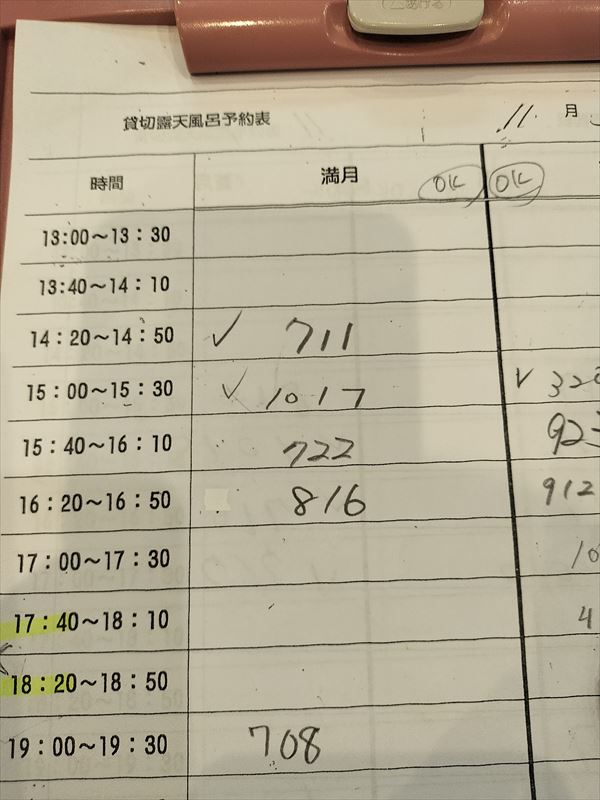 (△あげる)
貸切露天風呂予約表 11 月
時間 満月 OK OK
13:00～13:30
13:40～14:10
14:20～14:50 ✓ 711
15:00～15:30 ✓ 1017 ✓ 320
15:40～16:10 722 923
16:20～16:50 816 912
17:00～17:30 10
17:40～18:10 4
18:20～18:50
19:00～19:30 708